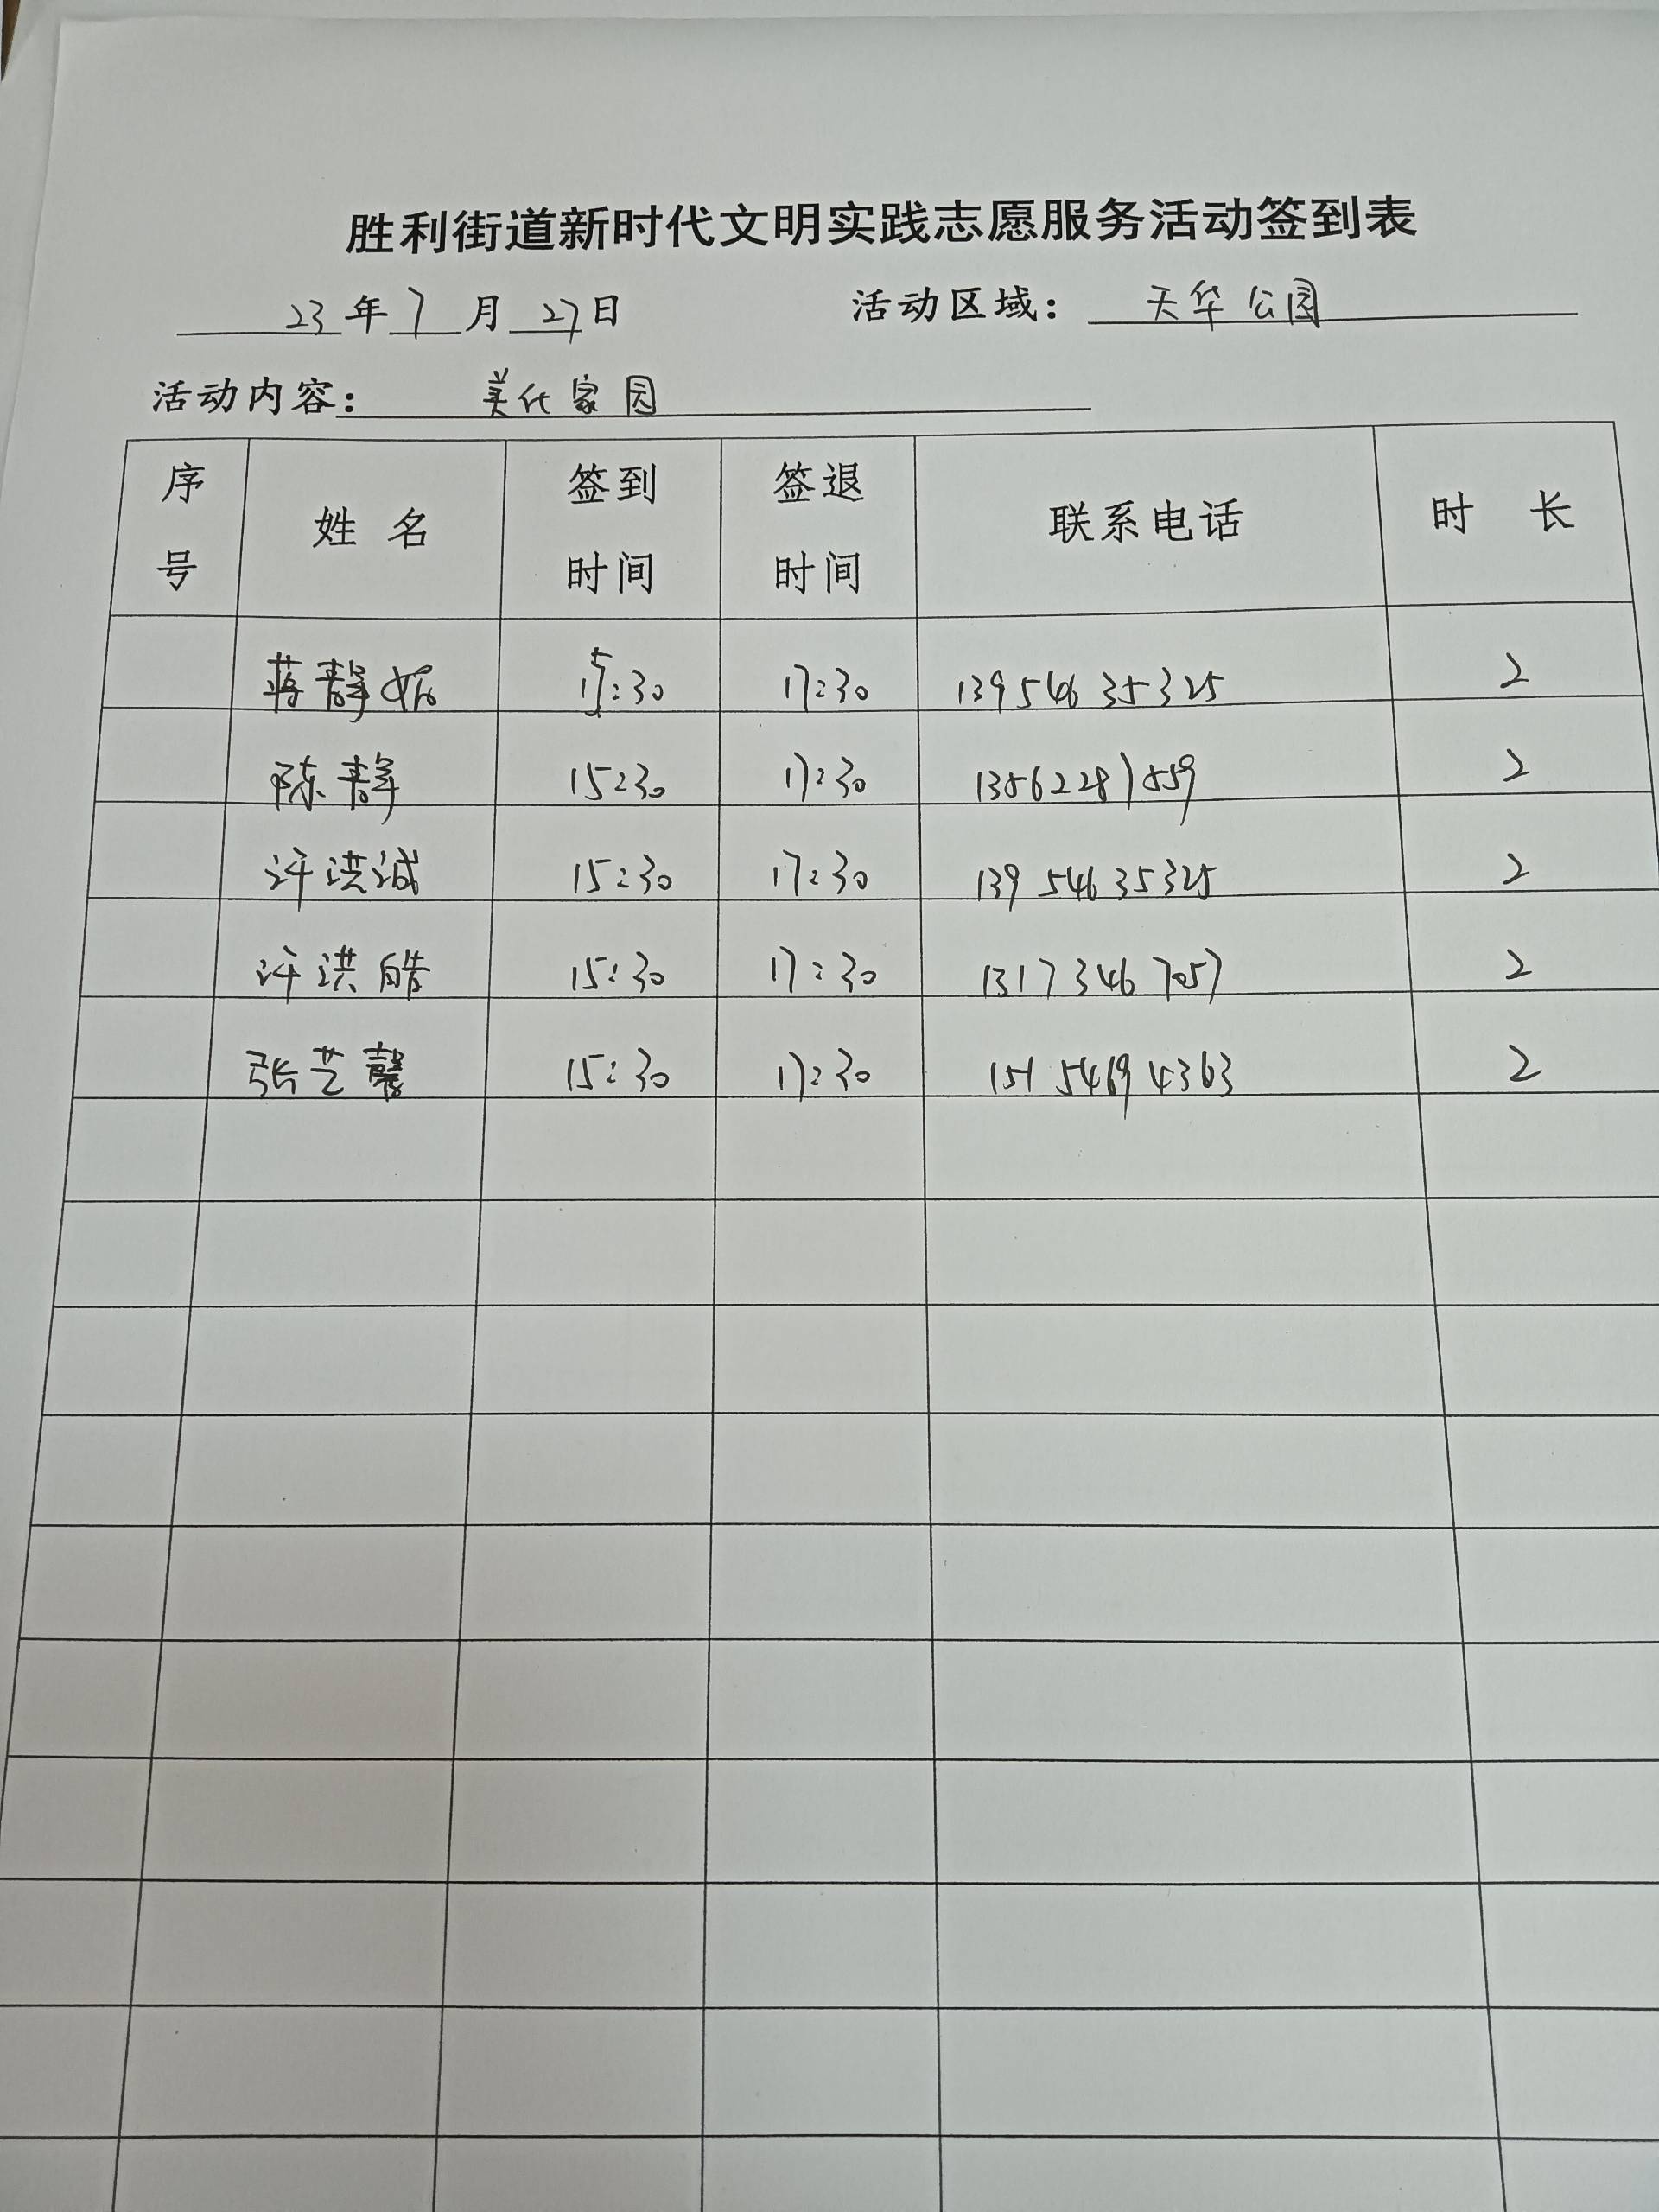 胜利街道新时代文明实践志愿服务活动签到表
23年7月27日 活动区域：天华公园
活动内容：美化家园
序号 姓名 签到时间 签退时间 联系电话 时长
蒋静妮 15:30 17:30 13954635325 2
陈静 15:30 17:30 13562281559 2
许洪诚 15:30 17:30 13954635325 2
许洪皓 15:30 17:30 13173467057 2
张艺馨 15:30 17:30 15154694363 2